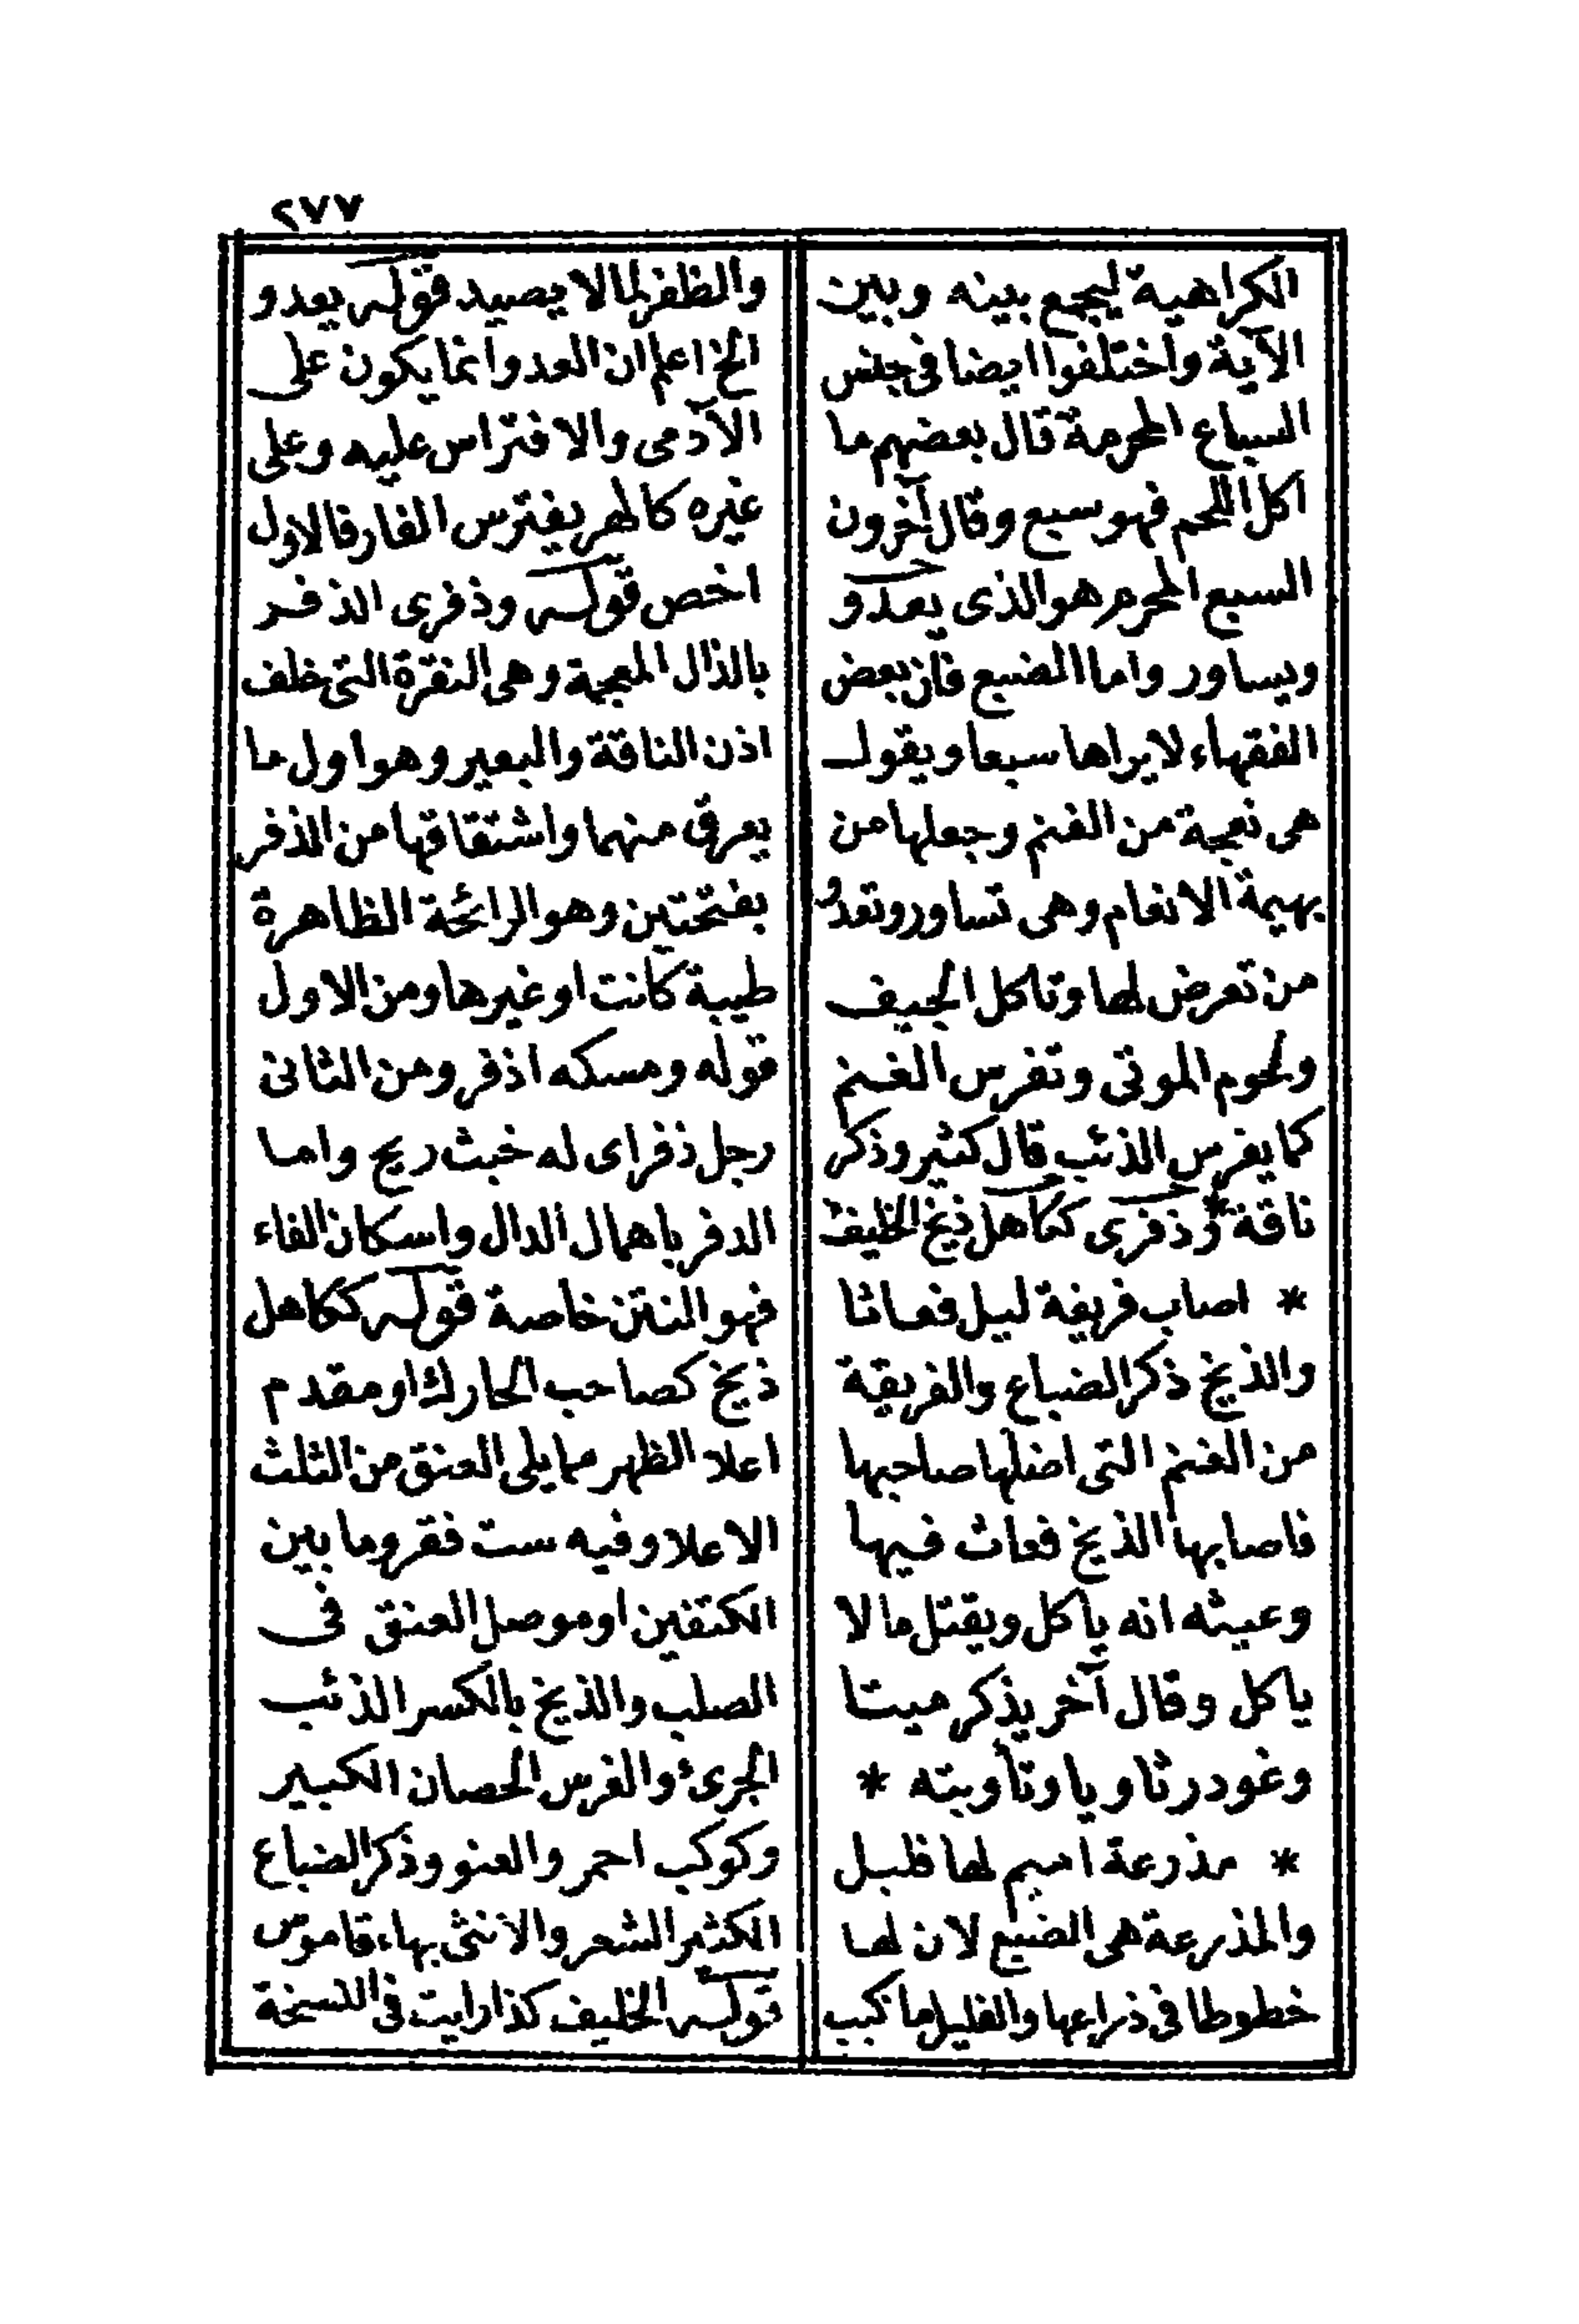 ٢٧٧
الكراهية ليجمع بينه وبين
الآية واختلفوا ايضا فى جنس
السباع المحرمة قال بعضهم ما
اكل اللحم فهو سبع وقال آخرون
السبع المحرم هو الذى يعدو
ويساور واما الضبع فان بعض
الفقهاء لا يراها سبعا ويقول
هى نعجة من الغنم وجعلها من
بهيمة الانعام وهى تساور وتعدو
من تعرض لها وتاكل الجيف
ولحوم الموتى وتفرس الغنم
كما يفرس الذئب قال كثير وذكر
ناقة * وذفرى ككاهل ذيخ الخليف
* اصاب فريقة ليل فعاثا
والذيخ ذكر الضباع والفريقة
من الغنم التى اضلها صاحبها
فاصابها الذيخ فعاث فيها
وعيثه انه ياكل ويقتل ما لا
ياكل وقال آخر يذكر ميتا
وغودر ثاويا وتأوبته *
* مذرعة اميم لها فليل
والمذرعة هى الضبع لان لها
خطوطا فى ذراعها والفليل ما كبب
والظفر لما لا يصيد قوله يعدو
الخ اعلم ان العدو انما يكون على
الآدمى والافتراس عليه وعلى
غيره كالهر يفترس الفار فالاول
اخص قوله وذفرى الذفر
بالذال المعجمة وهى النقرة التى خلف
اذن الناقة والبعير وهو اول ما
يعرق منهما واشتقاقها من الذفر
بفتحتين وهو الرائحة الظاهرة
طيبة كانت او غيرها ومن الاول
قوله ومسكه اذفر ومن الثانى
رجل ذفر اى له خبث ريح واما
الدفر باهمال الدال واسكان الفاء
فهو النتن خاصة قوله ككاهل
ذيخ كصاحب الحارك او مقدم
اعلا الظهر مما يلى العنق من الثلث
الاعلا وفيه ست فقر وما بين
الكتفين او موصل العنق فى
الصلب والذيخ بالكسر الذئب
الجرئ والفرس الحصان الكبير
وكوكب احمر والعنو وذكر الضباع
الكثير الشعر والانثى بهاء قاموس
قوله الخليف كذا رايت فى النسخة